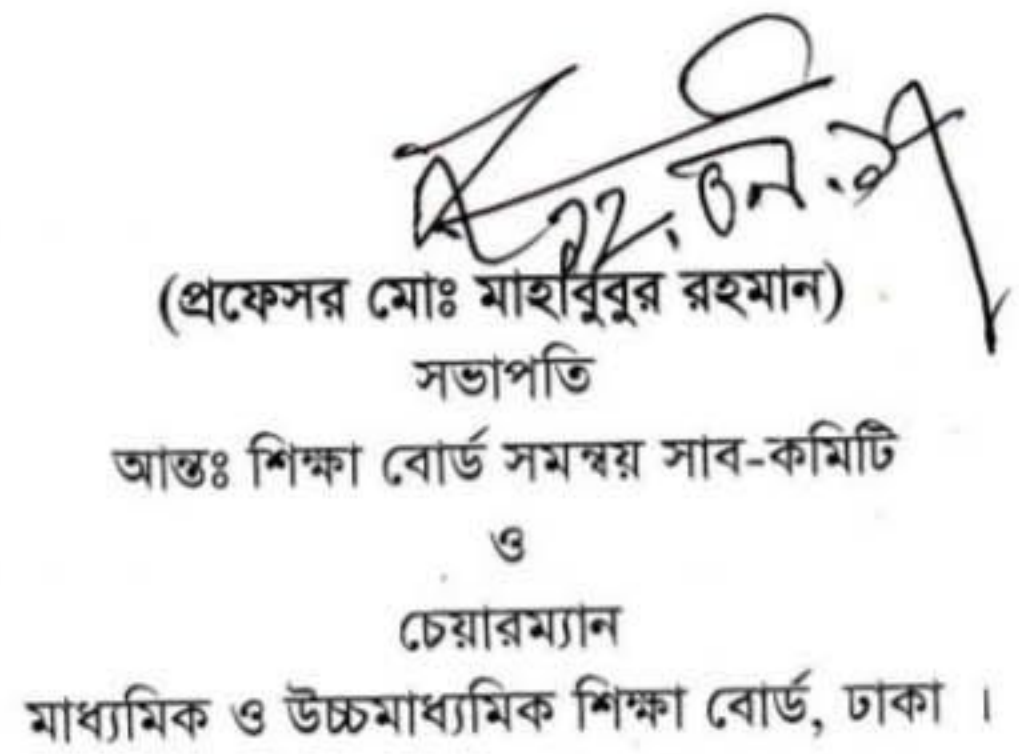 (প্রফেসর মোঃ মাহাবুবুর রহমান)
সভাপতি
আন্তঃ শিক্ষা বোর্ড সমন্বয় সাব-কমিটি
ও
চেয়ারম্যান
মাধ্যমিক ও উচ্চমাধ্যমিক শিক্ষা বোর্ড, ঢাকা ।